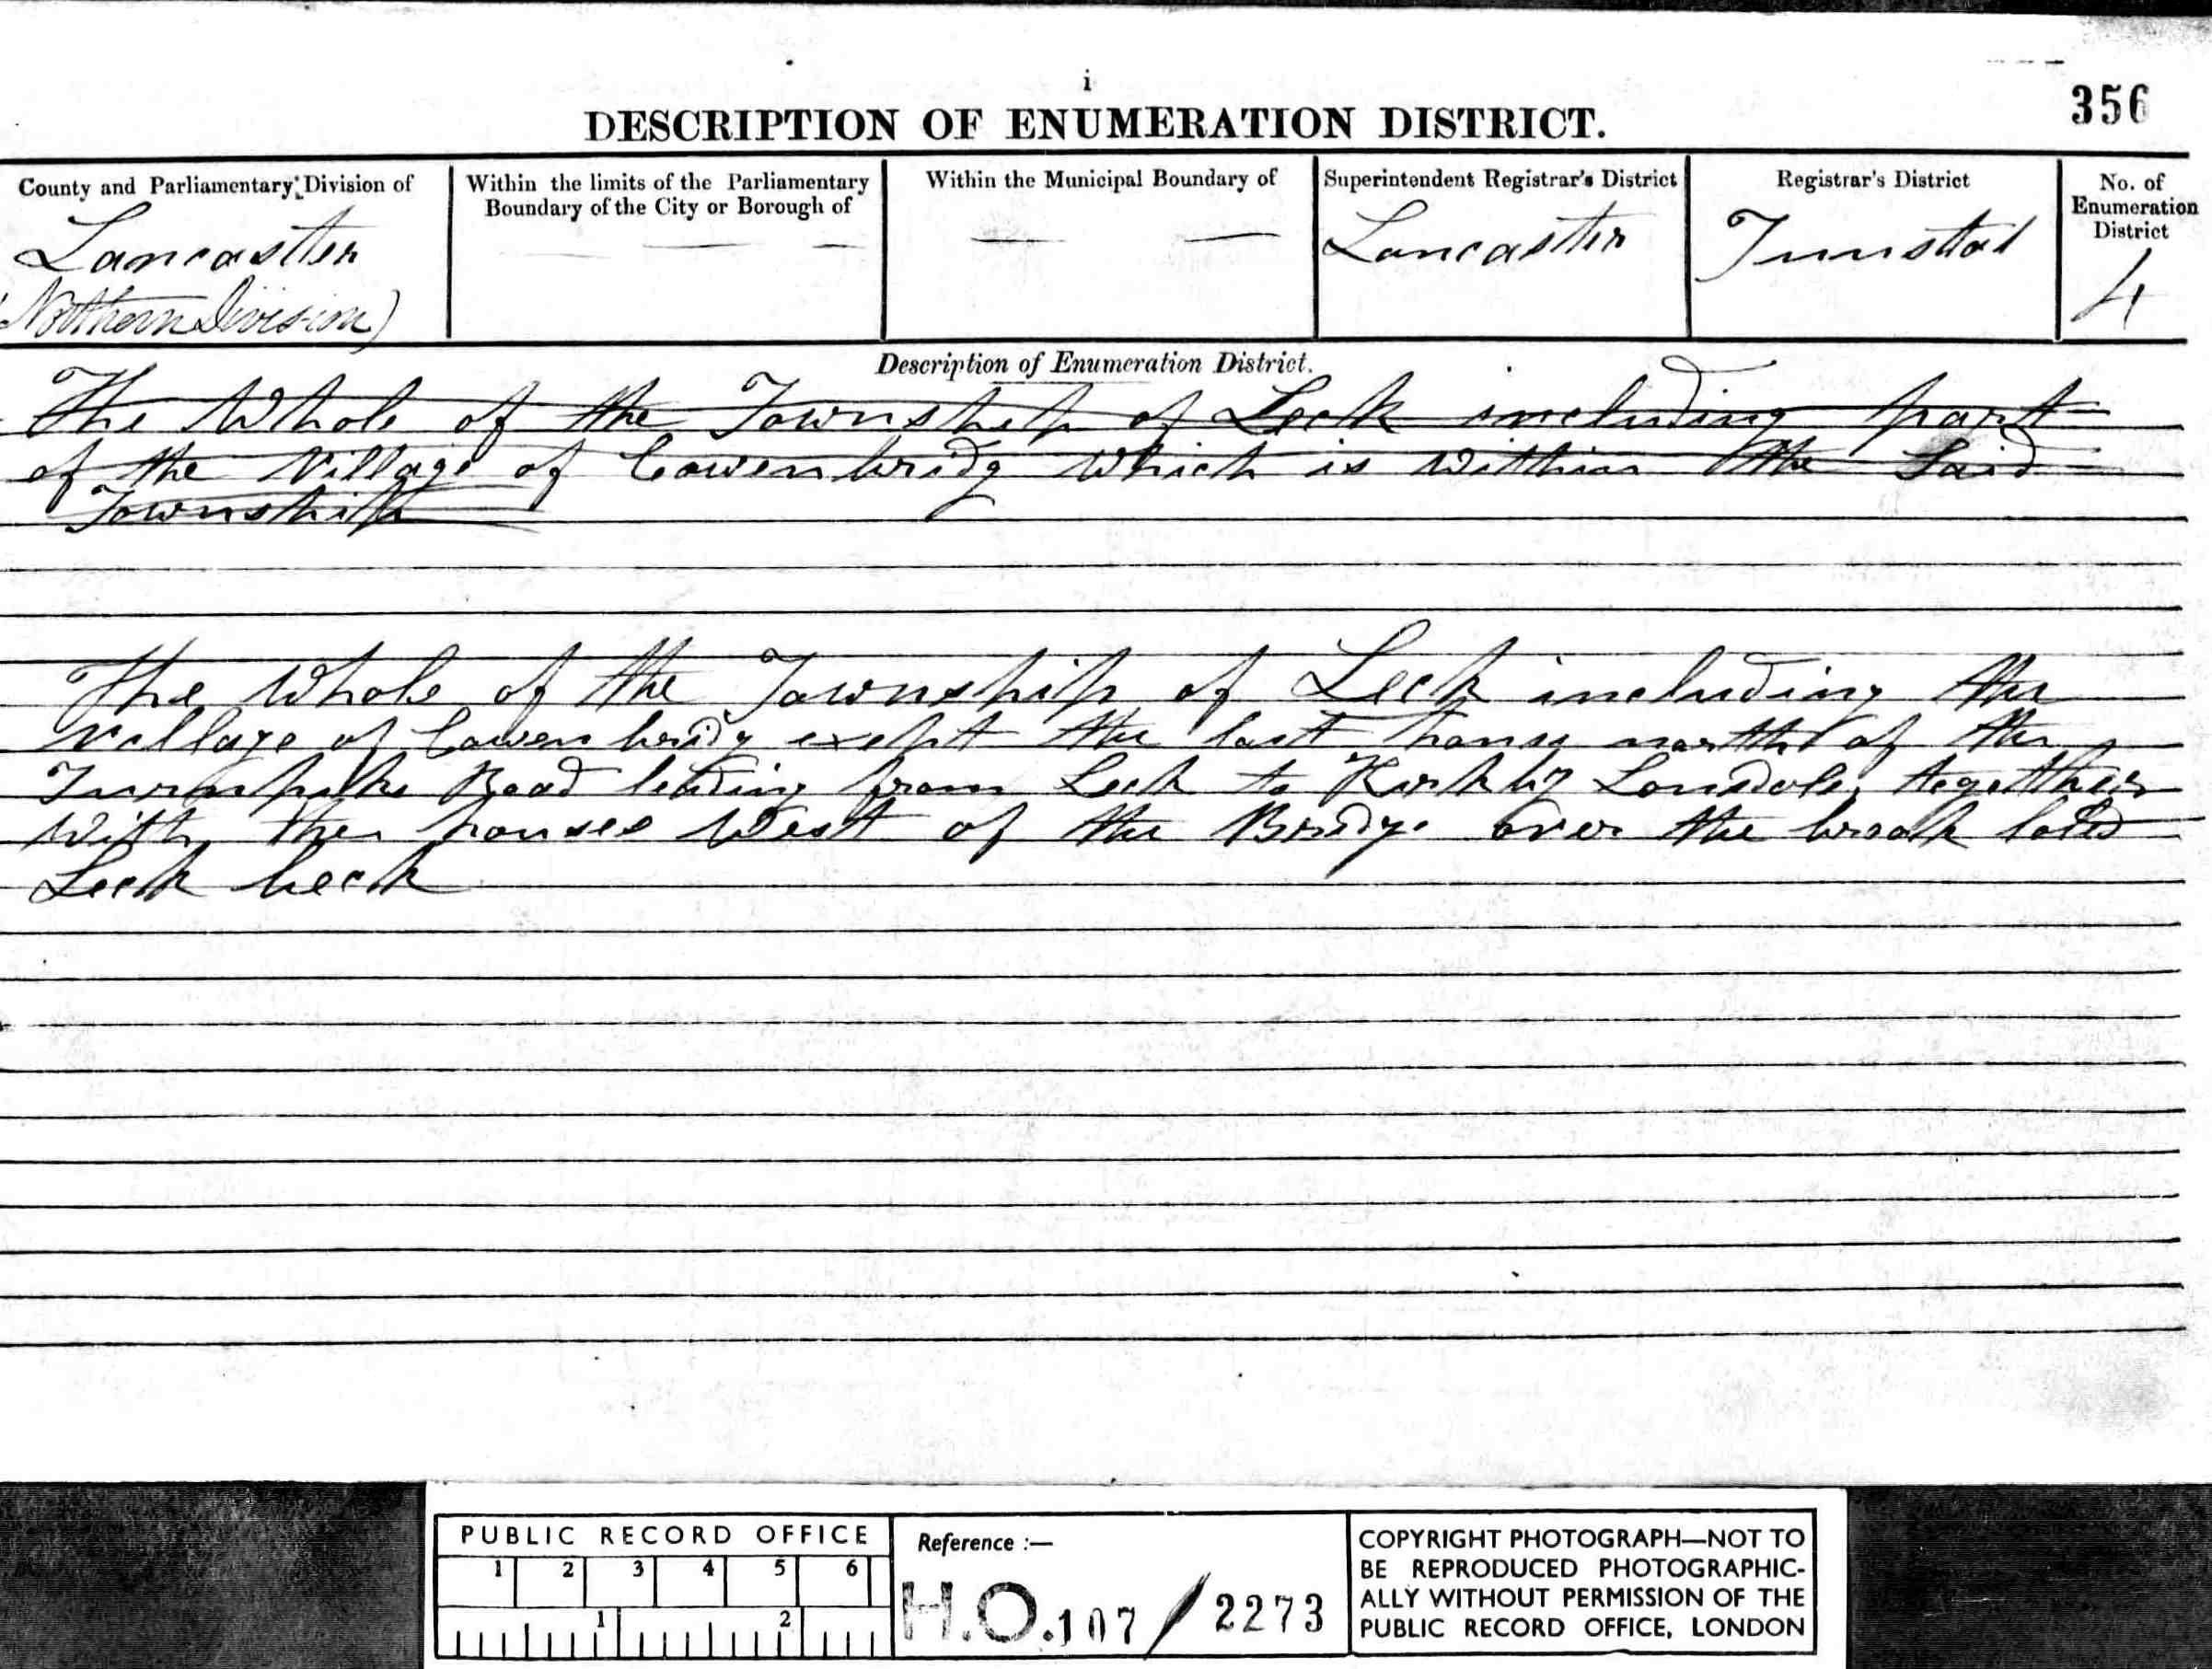 i
356
DESCRIPTION OF ENUMERATION DISTRICT.
County and Parliamentary Division of
Lancaster
(Northern Division)
Within the limits of the Parliamentary
Boundary of the City or Borough of
— —
Within the Municipal Boundary of
— —
Superintendent Registrar's District
Lancaster
Registrar's District
Tunstal
No. of
Enumeration
District
4
Description of Enumeration District.
The Whole of the Township of Leck including part
of the Village of Cowenbridg which is within the Said
Township
The Whole of the Township of Leck including the
village of Cowenbridg exept the last hous north of the
Turnpike Road leding from Leck to Kirkby Lonsdale together
With the houses West of the Bridge over the brook
Leck beck
PUBLIC RECORD OFFICE
1 2 3 4 5 6
1 2
Reference :—
H.O. 107 / 2273
COPYRIGHT PHOTOGRAPH—NOT TO
BE REPRODUCED PHOTOGRAPHIC-
ALLY WITHOUT PERMISSION OF THE
PUBLIC RECORD OFFICE, LONDON